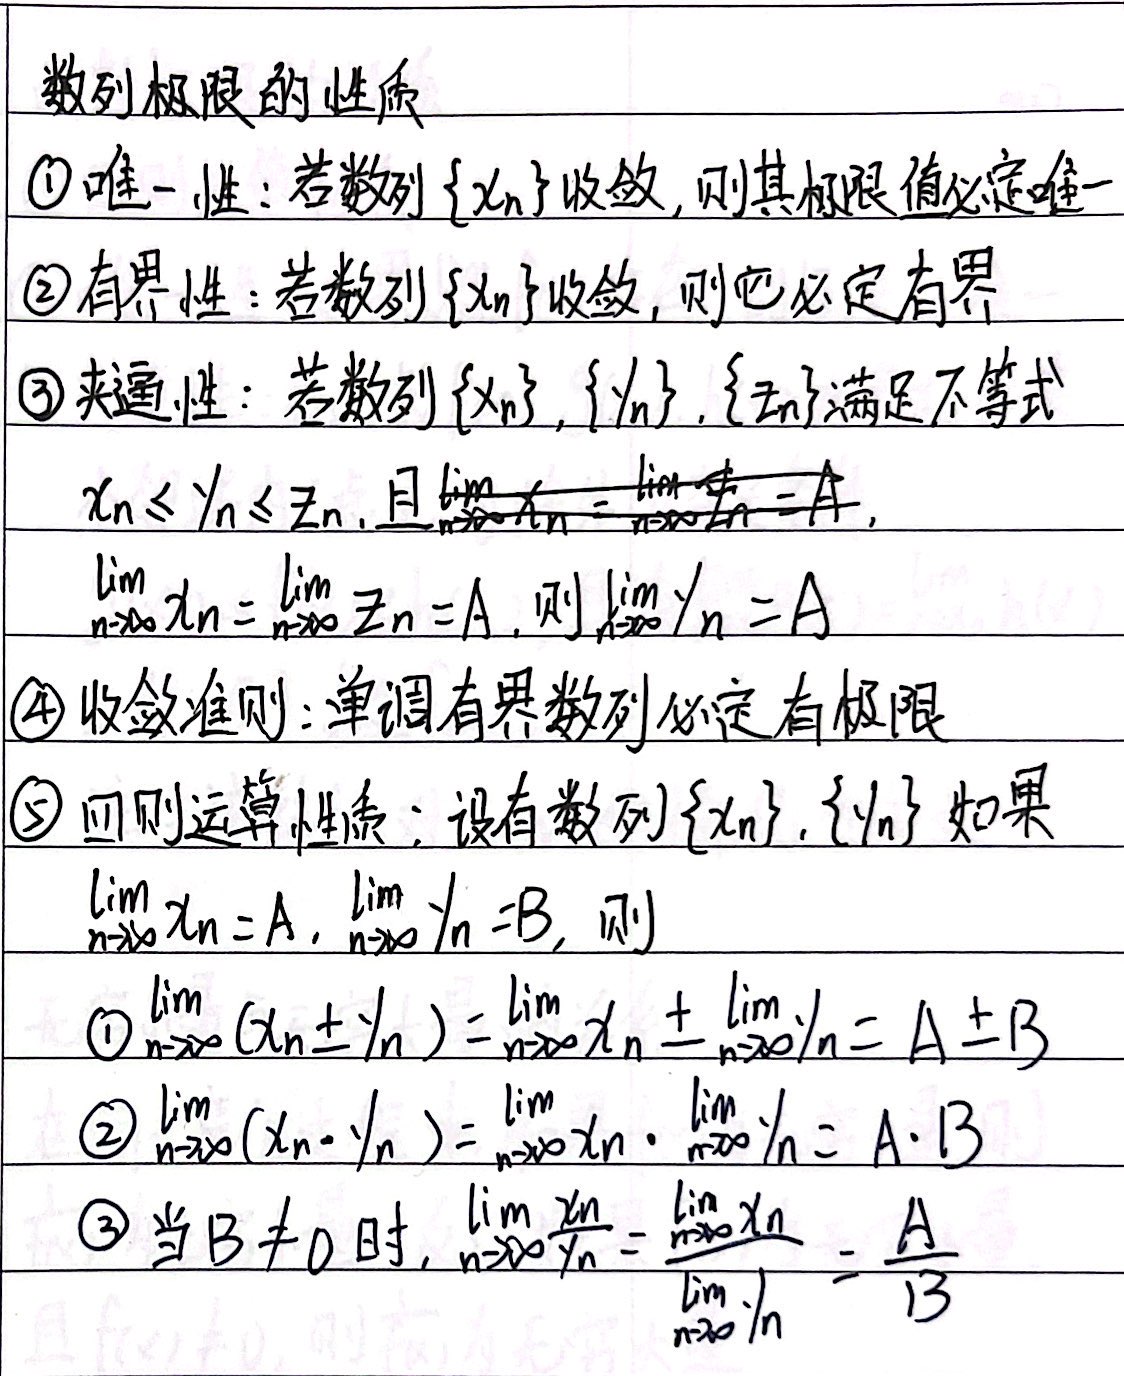 数列极限的性质
①唯一性：若数列{xₙ}收敛,则其极限值必定唯一
②有界性：若数列{xₙ}收敛,则它必定有界
③夹逼性：若数列{xₙ},{yₙ},{zₙ}满足不等式
xₙ≤yₙ≤zₙ,且lim n→∞ xₙ=lim n→∞ zₙ=A,
lim n→∞ xₙ=lim n→∞ zₙ=A,则lim n→∞ yₙ=A
④收敛准则：单调有界数列必定有极限
⑤四则运算性质：设有数列{xₙ},{yₙ}如果
lim n→∞ xₙ=A, lim n→∞ yₙ=B,则
① lim n→∞ (xₙ±yₙ)=lim n→∞ xₙ ± lim n→∞ yₙ=A±B
② lim n→∞ (xₙ·yₙ)=lim n→∞ xₙ · lim n→∞ yₙ=A·B
③当B≠0时, lim n→∞ xₙ/yₙ = lim n→∞ xₙ / lim n→∞ yₙ = A/B